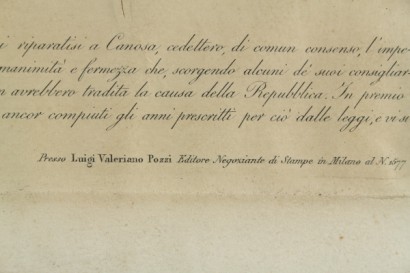 i riparatisi a Canosa, cedettero, di comun consenso, l'impe
manimità e fermezza che, scorgendo alcuni de' suoi consigliar
n avrebbero tradita la causa della Repubblica. In premio
ancor compiuti gli anni prescritti per ciò dalle leggi, e vi su
Presso Luigi Valeriano Pozzi Editore Negoziante di Stampe in Milano al N. 1577